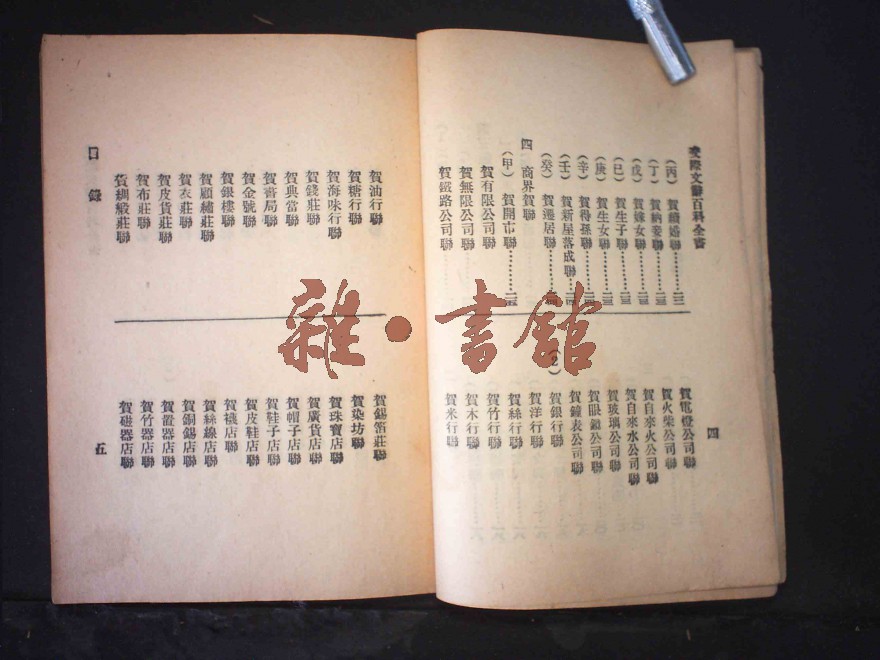 交際文辭百科全書
四
(丙) 賀續婚聯…………一三
(丁) 賀納妾聯…………一三
(戊) 賀嫁女聯…………一三
(己) 賀生子聯…………一三
(庚) 賀生女聯…………一三
(辛) 賀得孫聯…………一四
(壬) 賀新屋落成聯……一四
(癸) 賀遷居聯…………一四
四 商界賀聯
(甲) 賀開市聯…………一五
賀有限公司聯
賀無限公司聯
賀鐵路公司聯
賀電燈公司聯
賀火柴公司聯
賀自來火公司聯
賀自來水公司聯
賀玻璃公司聯
賀眼鏡公司聯
賀鐘表公司聯
(2)
賀銀行聯
賀洋行聯
賀絲行聯
賀竹行聯
賀木行聯
賀米行聯
賀油行聯
賀糖行聯
賀海味行聯
賀錢莊聯
賀典當聯
賀書局聯
賀金號聯
賀銀樓聯
賀顧繡莊聯
賀衣莊聯
賀皮貨莊聯
賀布莊聯
賀綢緞莊聯
賀錫箔莊聯
賀染坊聯
賀珠寶店聯
賀廣貨店聯
賀帽子店聯
賀鞋子店聯
賀皮鞋店聯
賀襪店聯
賀絲線店聯
賀銅錫店聯
賀置器店聯
賀竹器店聯
賀磁器店聯
目錄
五
雜·書館